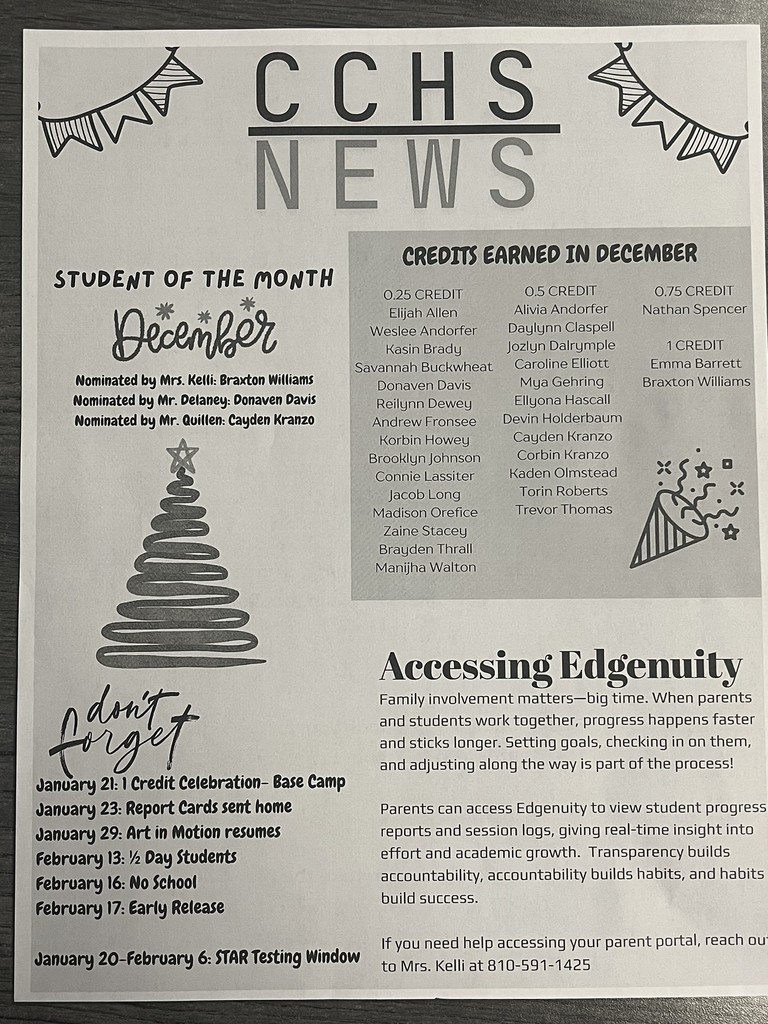 CCHS
NEWS
STUDENT OF THE MONTH
December
Nominated by Mrs. Kelli: Braxton Williams
Nominated by Mr. Delaney: Donaven Davis
Nominated by Mr. Quillen: Cayden Kranzo
CREDITS EARNED IN DECEMBER
0.25 CREDIT
Elijah Allen
Weslee Andorfer
Kasin Brady
Savannah Buckwheat
Donaven Davis
Reilynn Dewey
Andrew Fronsee
Korbin Howey
Brooklyn Johnson
Connie Lassiter
Jacob Long
Madison Orefice
Zaine Stacey
Brayden Thrall
Manijha Walton
0.5 CREDIT
Alivia Andorfer
Daylynn Claspell
Jozlyn Dalrymple
Caroline Elliott
Mya Gehring
Ellyona Hascall
Devin Holderbaum
Cayden Kranzo
Corbin Kranzo
Kaden Olmstead
Torin Roberts
Trevor Thomas
0.75 CREDIT
Nathan Spencer
1 CREDIT
Emma Barrett
Braxton Williams
don't
forget
January 21: 1 Credit Celebration- Base Camp
January 23: Report Cards sent home
January 29: Art in Motion resumes
February 13: ½ Day Students
February 16: No School
February 17: Early Release
January 20-February 6: STAR Testing Window
Accessing Edgenuity
Family involvement matters—big time. When parents
and students work together, progress happens faster
and sticks longer. Setting goals, checking in on them,
and adjusting along the way is part of the process!
Parents can access Edgenuity to view student progress
reports and session logs, giving real-time insight into
effort and academic growth. Transparency builds
accountability, accountability builds habits, and habits
build success.
If you need help accessing your parent portal, reach out
to Mrs. Kelli at 810-591-1425